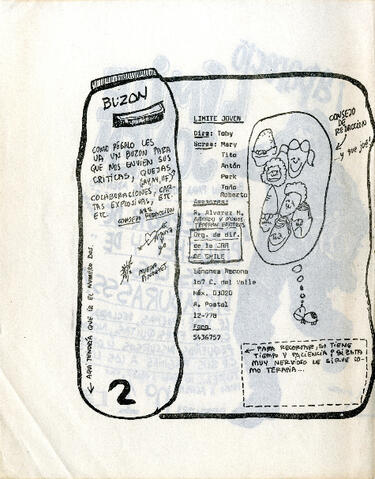 BUZON
COMO REGALO LES
VA UN BUZON PARA
QUE NOS ENVIEN SUS
CRITICAS, QUEJAS
COLABORACIONES, CAR-
TAS EXPLOSIVAS, ETC.
ETC.
CONSEJO REDACCION
← AQUI TENDRIA QUE IR EL NUMERO DOS.
2
LIMITE JOVEN
Dire: Toby
Scres: Mary
Tito
Antón
Perk
Toño
Roberto
Asesores:
S. Alvarez M.
Org. de dif.
de la
DE CHILE
Sánchez Azcona
107 C. del Valle
Méx. 03020
A. Postal
12-778
Fono
5436757
CONSEJO
DE
REDACCION
y que jod
← PARA RECORTAR, SI TIENE
TIEMPO Y PACIENCIA O SI ESTA
MUY NERVIOSO LE SIRVE CO-
MO TERAPIA...